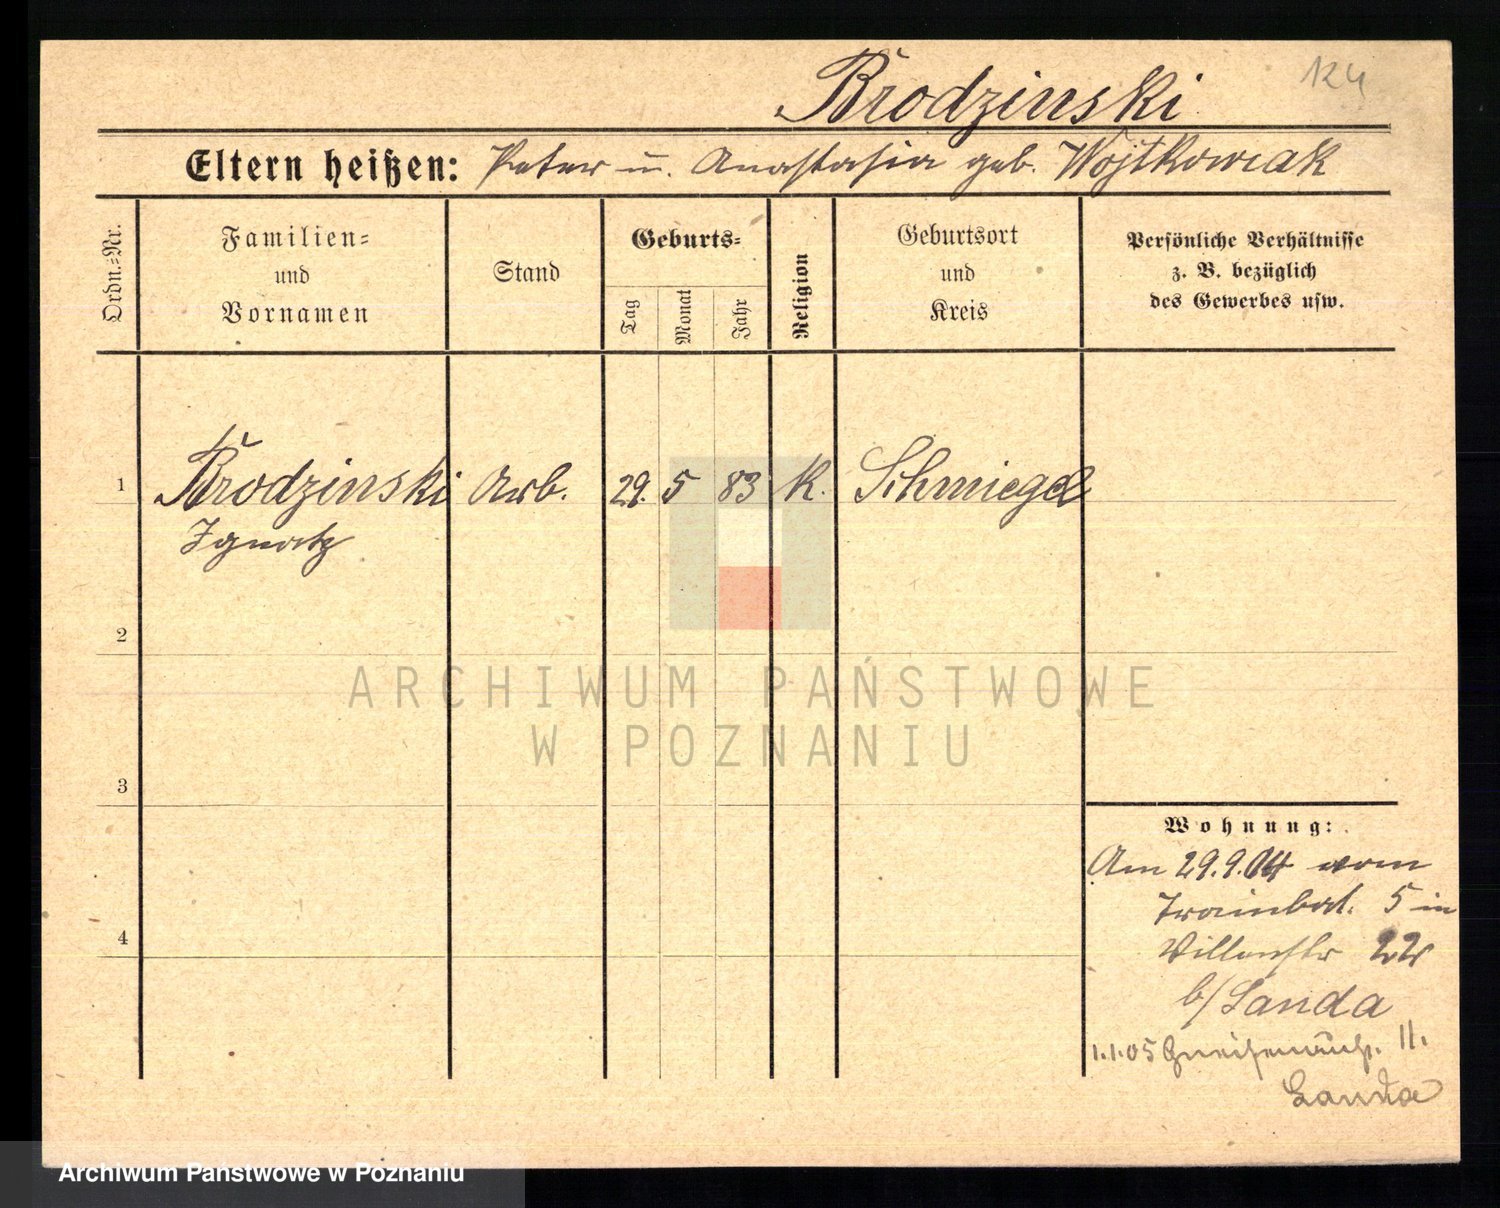 124
Brodzinski
Eltern heißen: Peter u. Anastasia geb. Wojtkowiak
Ordn.=Nr.
Familien=
und
Vornamen
Stand
Geburts=
Tag
Monat
Jahr
Religion
Geburtsort
und
Kreis
Persönliche Verhältnisse
z. B. bezüglich
des Gewerbes usw.
1 Brodzinski Arb. 29. 5 83 K. Schmiegel
Ignatz
2
3
4
Wohnung:
Am 29.9.04 vom
Trainbat. 5 in
Villenstr 22
b/Landa
1.1.05 Gneisenaustr. 11.
Landa
ARCHIWUM PAŃSTWOWE
W POZNANIU
Archiwum Państwowe w Poznaniu